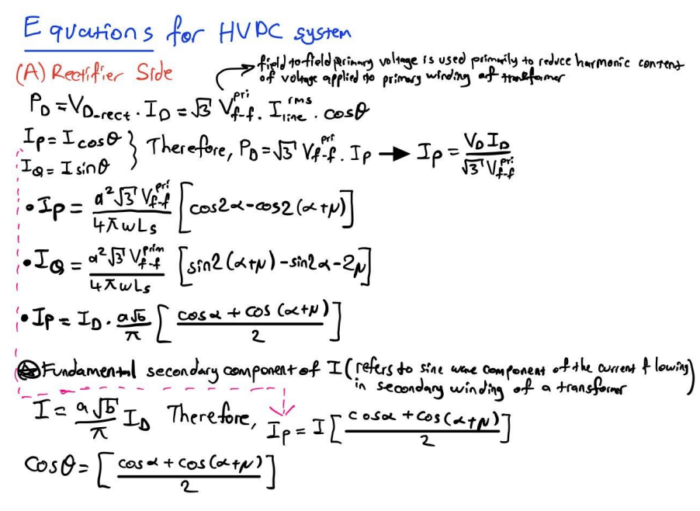 Equations for HVDC system
(A) Rectifier Side
→ field to field primary voltage is used primarily to reduce harmonic content
of voltage applied to primary winding of transformer
P_D = V_D_rect · I_D = √3 V_f-f^pri · I_line^rms · cosθ
I_P = I cosθ
I_Q = I sinθ
} Therefore, P_D = √3 V_f-f^pri · I_P → I_P = V_D I_D / √3 V_f-f^pri
• I_P = a²√3 V_f-f^pri / 4πωL_s [cos2α - cos2(α+μ)]
• I_Q = a²√3 V_f-f^prim / 4πωL_s [sin2(α+μ) - sin2α - 2μ]
• I_P = I_D · a√6 / π [cosα + cos(α+μ) / 2]
Fundamental secondary component of I (refers to sine wave component of the current flowing)
in secondary winding of a transformer
I = a√6 / π I_D Therefore, I_P = I [cosα + cos(α+μ) / 2]
cosθ = [cosα + cos(α+μ) / 2]